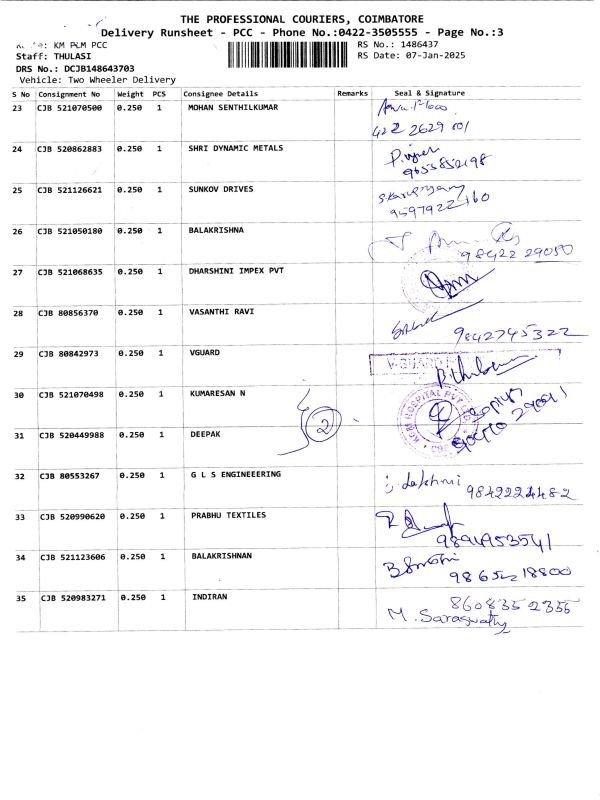 THE PROFESSIONAL COURIERS, COIMBATORE
Delivery Runsheet - PCC - Phone No.:0422-3505555 - Page No.:3
KM PCM PCC RS No.: 1486437
Staff: THULASI RS Date: 07-Jan-2025
DRS No.: DCJB148643703
Vehicle: Two Wheeler Delivery
S No Consignment No Weight PCS Consignee Details Remarks Seal & Signature
23 CJB 521070500 0.250 1 MOHAN SENTHILKUMAR
422 2629 001
24 CJB 520862883 0.250 1 SHRI DYNAMIC METALS
9655852198
25 CJB 521126621 0.250 1 SUNKOV DRIVES
9597922160
26 CJB 521050180 0.250 1 BALAKRISHNA
98422 29050
27 CJB 521068635 0.250 1 DHARSHINI IMPEX PVT
28 CJB 80856370 0.250 1 VASANTHI RAVI
9842745322
29 CJB 80842973 0.250 1 VGUARD
V-GUARD
30 CJB 521070498 0.250 1 KUMARESAN N
HOSPITAL PVT
2
31 CJB 520449988 0.250 1 DEEPAK
32 CJB 80553267 0.250 1 G L S ENGINEEERING
G. Lakshmi
9842224482
33 CJB 520990620 0.250 1 PRABHU TEXTILES
9894953541
34 CJB 521123606 0.250 1 BALAKRISHNAN
98652 18800
35 CJB 520983271 0.250 1 INDIRAN
860835 2355
M. Saraswathy